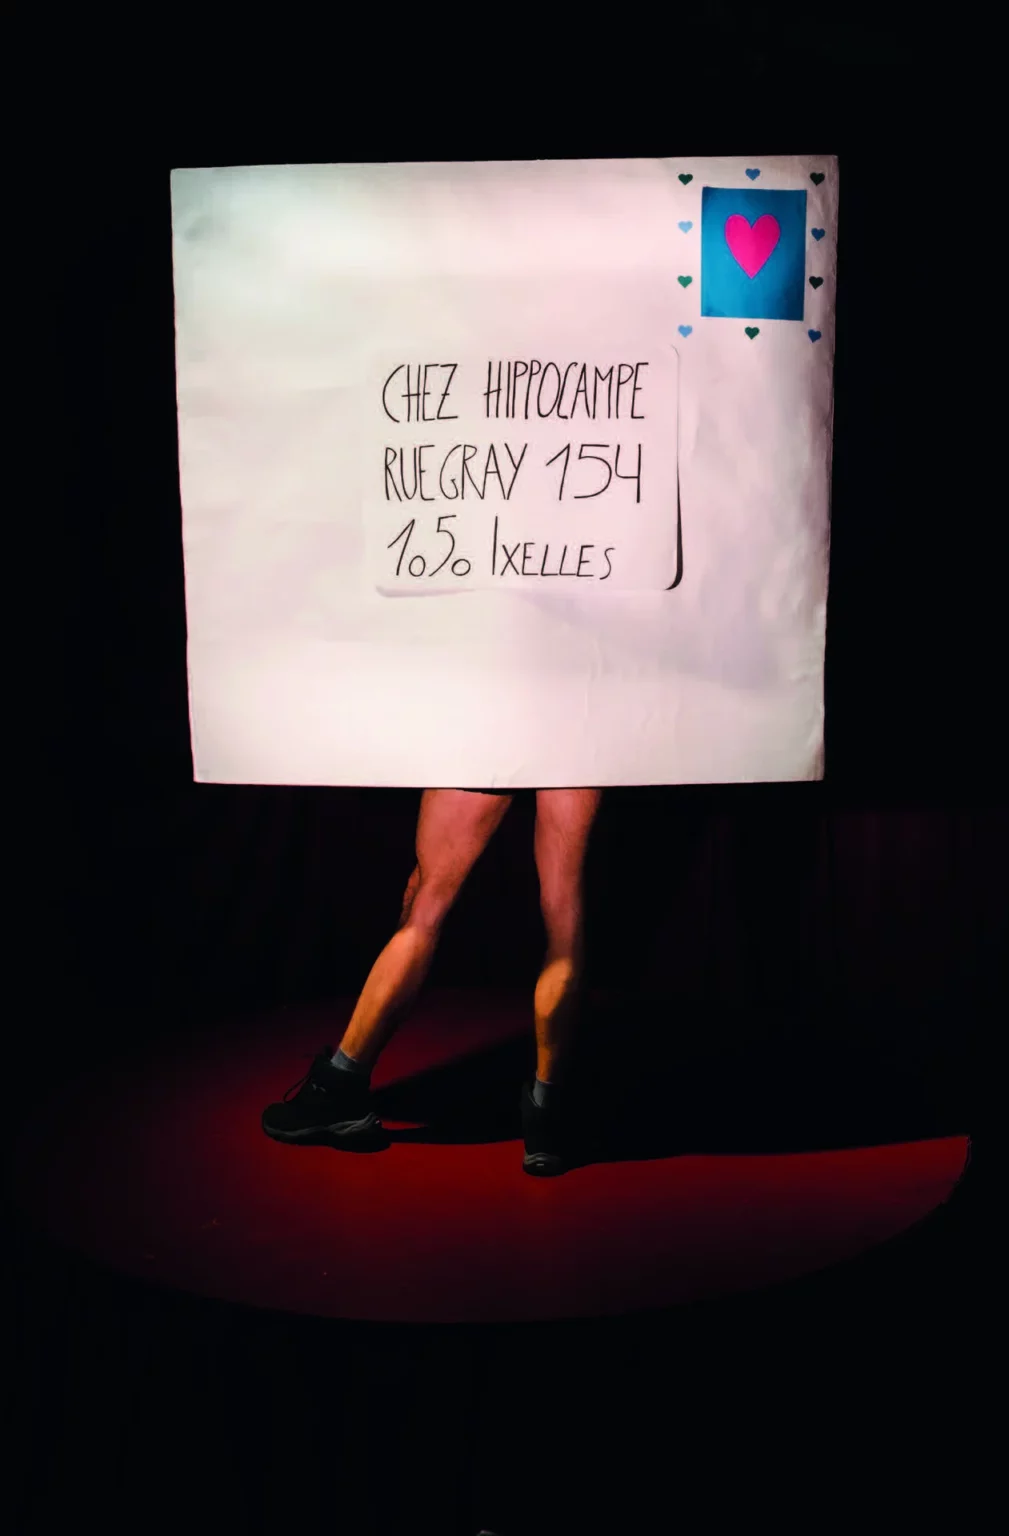 CHEZ HIPPOCAMPE
RUE GRAY 154
1050 IXELLES